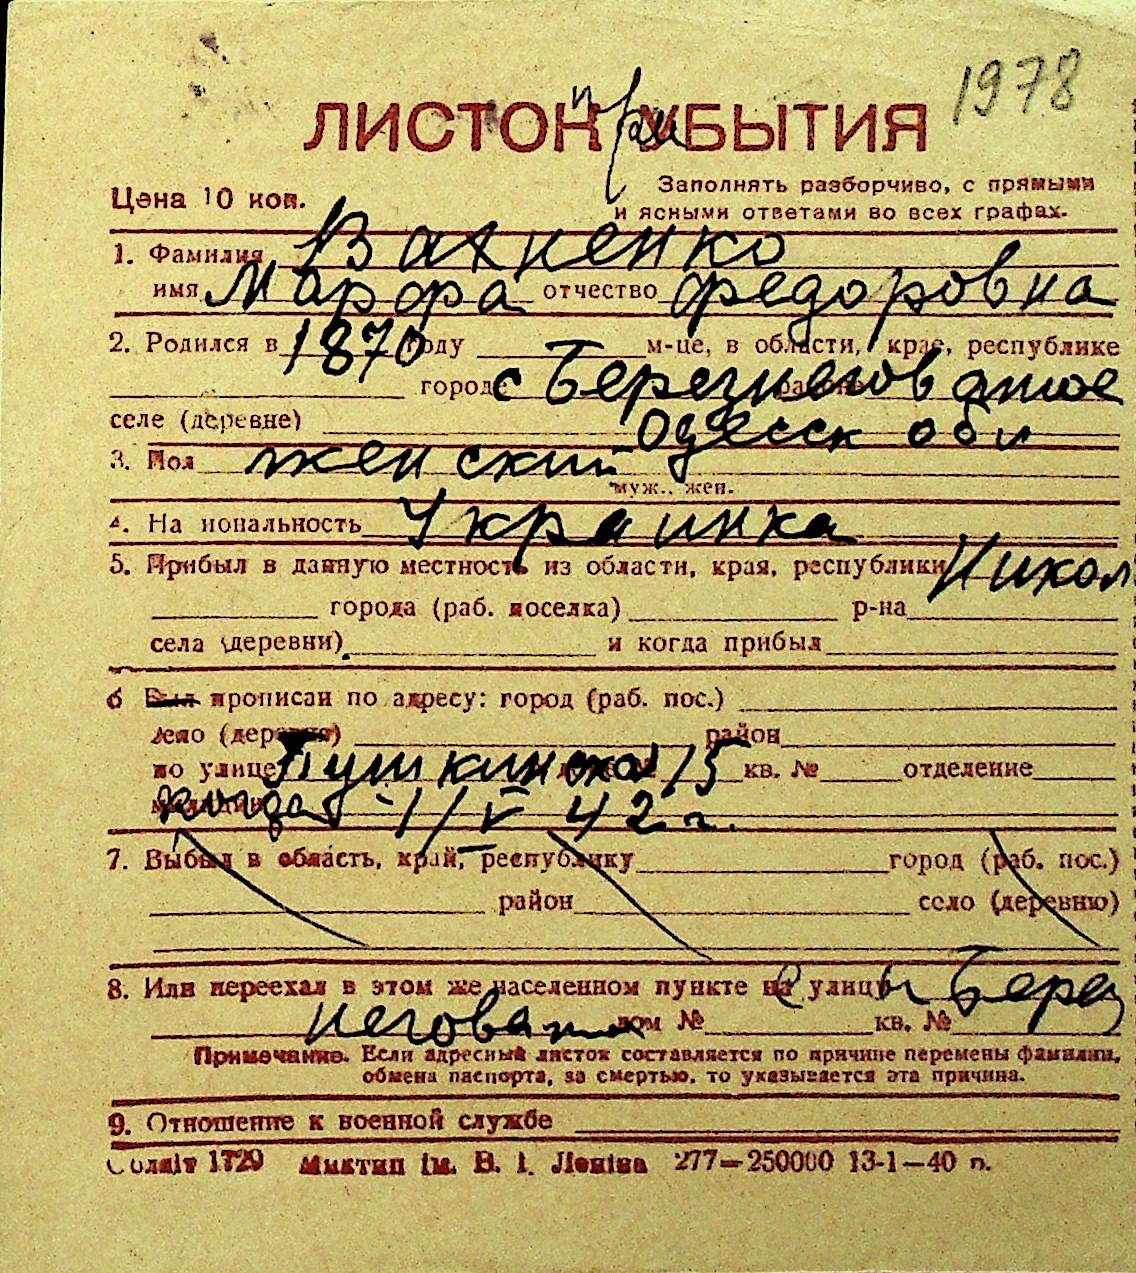 1978
ЛИСТОК при УБЫТИЯ
Цена 10 коп.
Заполнять разборчиво, с прямыми
и ясными ответами во всех графах.
1. Фамилия Вахненко
имя Марфа отчество Федоровна
2. Родился в 1870 году м-це, в области, крае, республике
городе с Березнеговатое
селе (деревне) Одесск обл
3. Пол женский
муж., жен.
4. На иональность Украинка
5. Прибыл в данную местность из области, края, республики Никол
города (раб. поселка) р-на
села (деревни) и когда прибыл
6 Был прописан по адресу: город (раб. пос.)
село (деревня) район
по улице Пушкинская 15 кв. № отделение
когда 1/V 42 г.
7. Выбыл в область, край, республику город (раб. пос.)
район село (деревню)
8. Или переехал в этом же населенном пункте на улицу Берез
неговат дом № кв. №
Примечание. Если адресный листок составляется по причине перемены фамилии,
обмена паспорта, за смертью, то указывается эта причина.
9. Отношение к военной службе
Облліт 1729 Миктип ім. В. І. Леніна 277—250000 13-1—40 р.